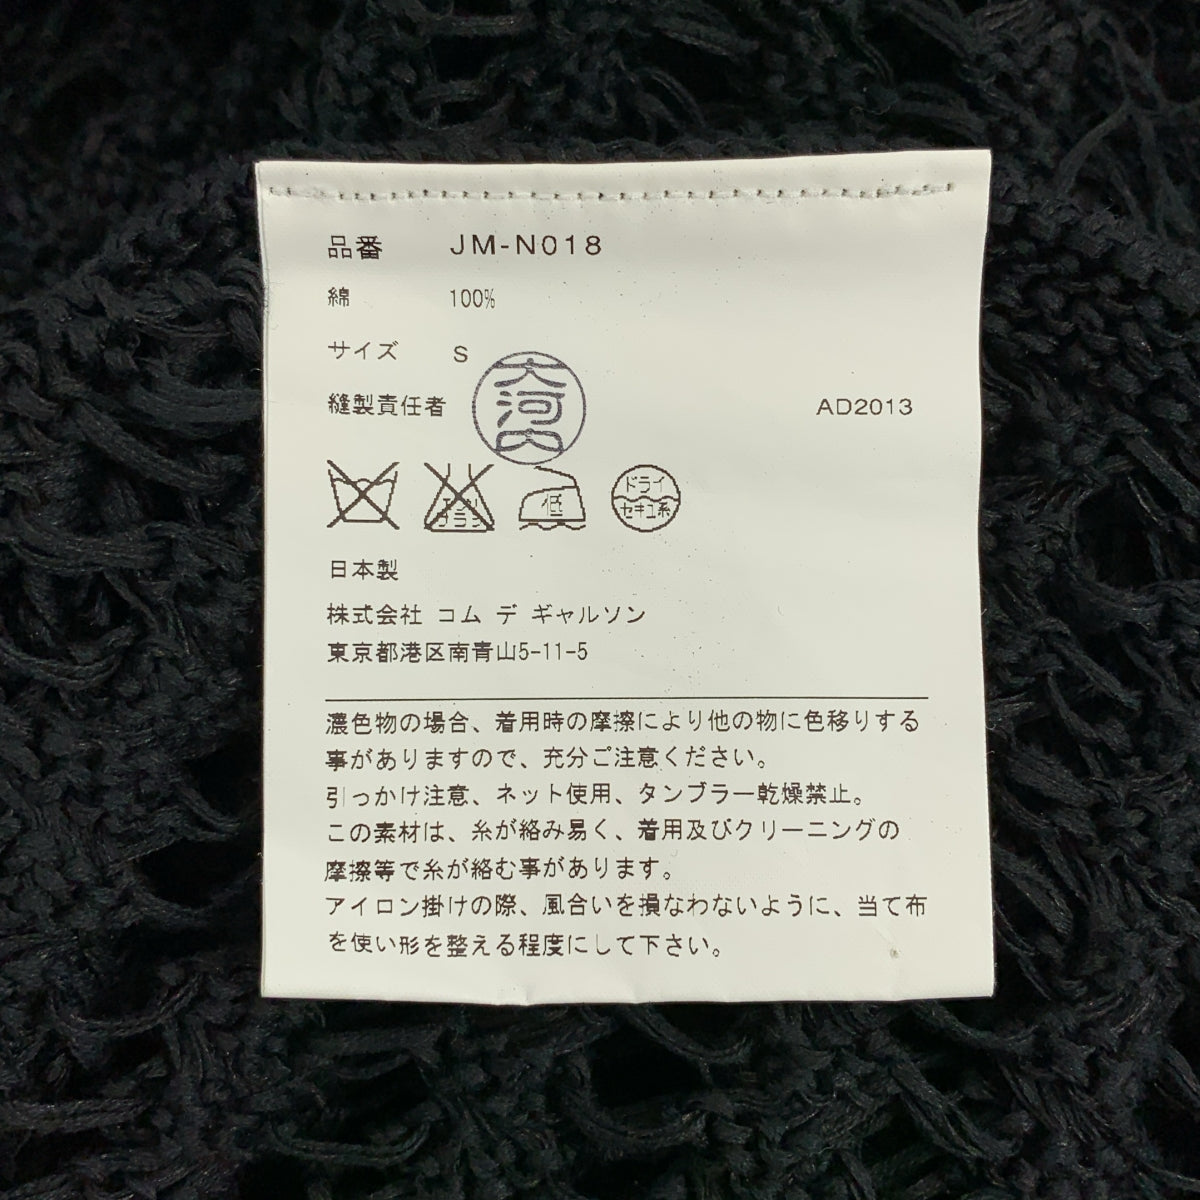 品番 JM-N018
綿 100%
サイズ S
縫製責任者 大河内 AD2013
エンソ
サラシ
低
ドライ
セキユ系
日本製
株式会社 コム デ ギャルソン
東京都港区南青山5-11-5
濃色物の場合、着用時の摩擦により他の物に色移りする
事がありますので、充分ご注意ください。
引っかけ注意、ネット使用、タンブラー乾燥禁止。
この素材は、糸が絡み易く、着用及びクリーニングの
摩擦等で糸が絡む事があります。
アイロン掛けの際、風合いを損なわないように、当て布
を使い形を整える程度にして下さい。